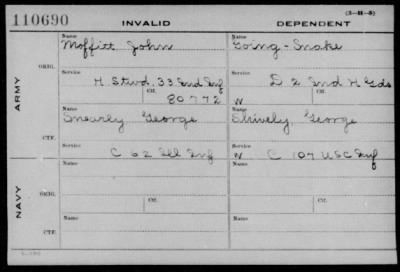 (3—H—8)
110690 INVALID DEPENDENT
Name Name
Moffitt John Going-Snake
ORIG. Service Service
H. Stwd. 33 Ind Inf D 2 Ind H Gds
Ctf. Ctf.
80772 W
ARMY
Name Name
Snearly George Shively, George
CTF. Service Service
C 62 Ill Inf W C 107 U S C Inf
Name Name
ORIG. Service Service
Ctf. Ctf.
NAVY
Name Name
CTF. Service Service